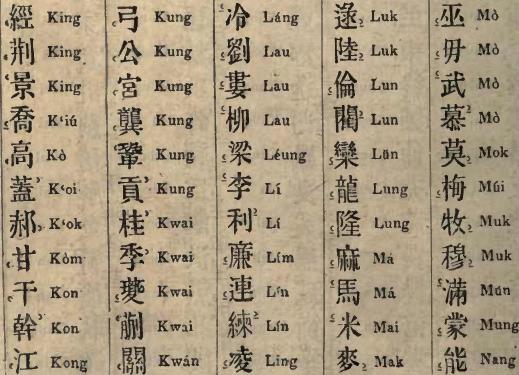 經 King
荆 King
景 King
喬 K‘iú
高 Kò
蓋 K‘oi
郝 K‘ok
甘 Kòm
干 Kon
幹 Kon
江 Kong
弓 Kung
公 Kung
宮 Kung
龔 Kung
鞏 Kung
貢 Kung
桂 Kwai
季 Kwai
夔 Kwai
蒯 Kwai
關 Kwán
冷 Láng
劉 Lau
婁 Lau
柳 Lau
梁 Léung
李 Lí
利 Lí
廉 Lím
連 Lín
練 Lín
凌 Ling
逯 Luk
陸 Luk
倫 Lun
Lun
欒 Lün
龍 Lung
隆 Lung
麻 Má
馬 Má
米 Mai
麥 Mak
巫 Mò
毋 Mò
武 Mò
慕 Mò
莫 Mok
梅 Múi
牧 Muk
穆 Muk
滿 Mún
蒙 Mung
能 Nang